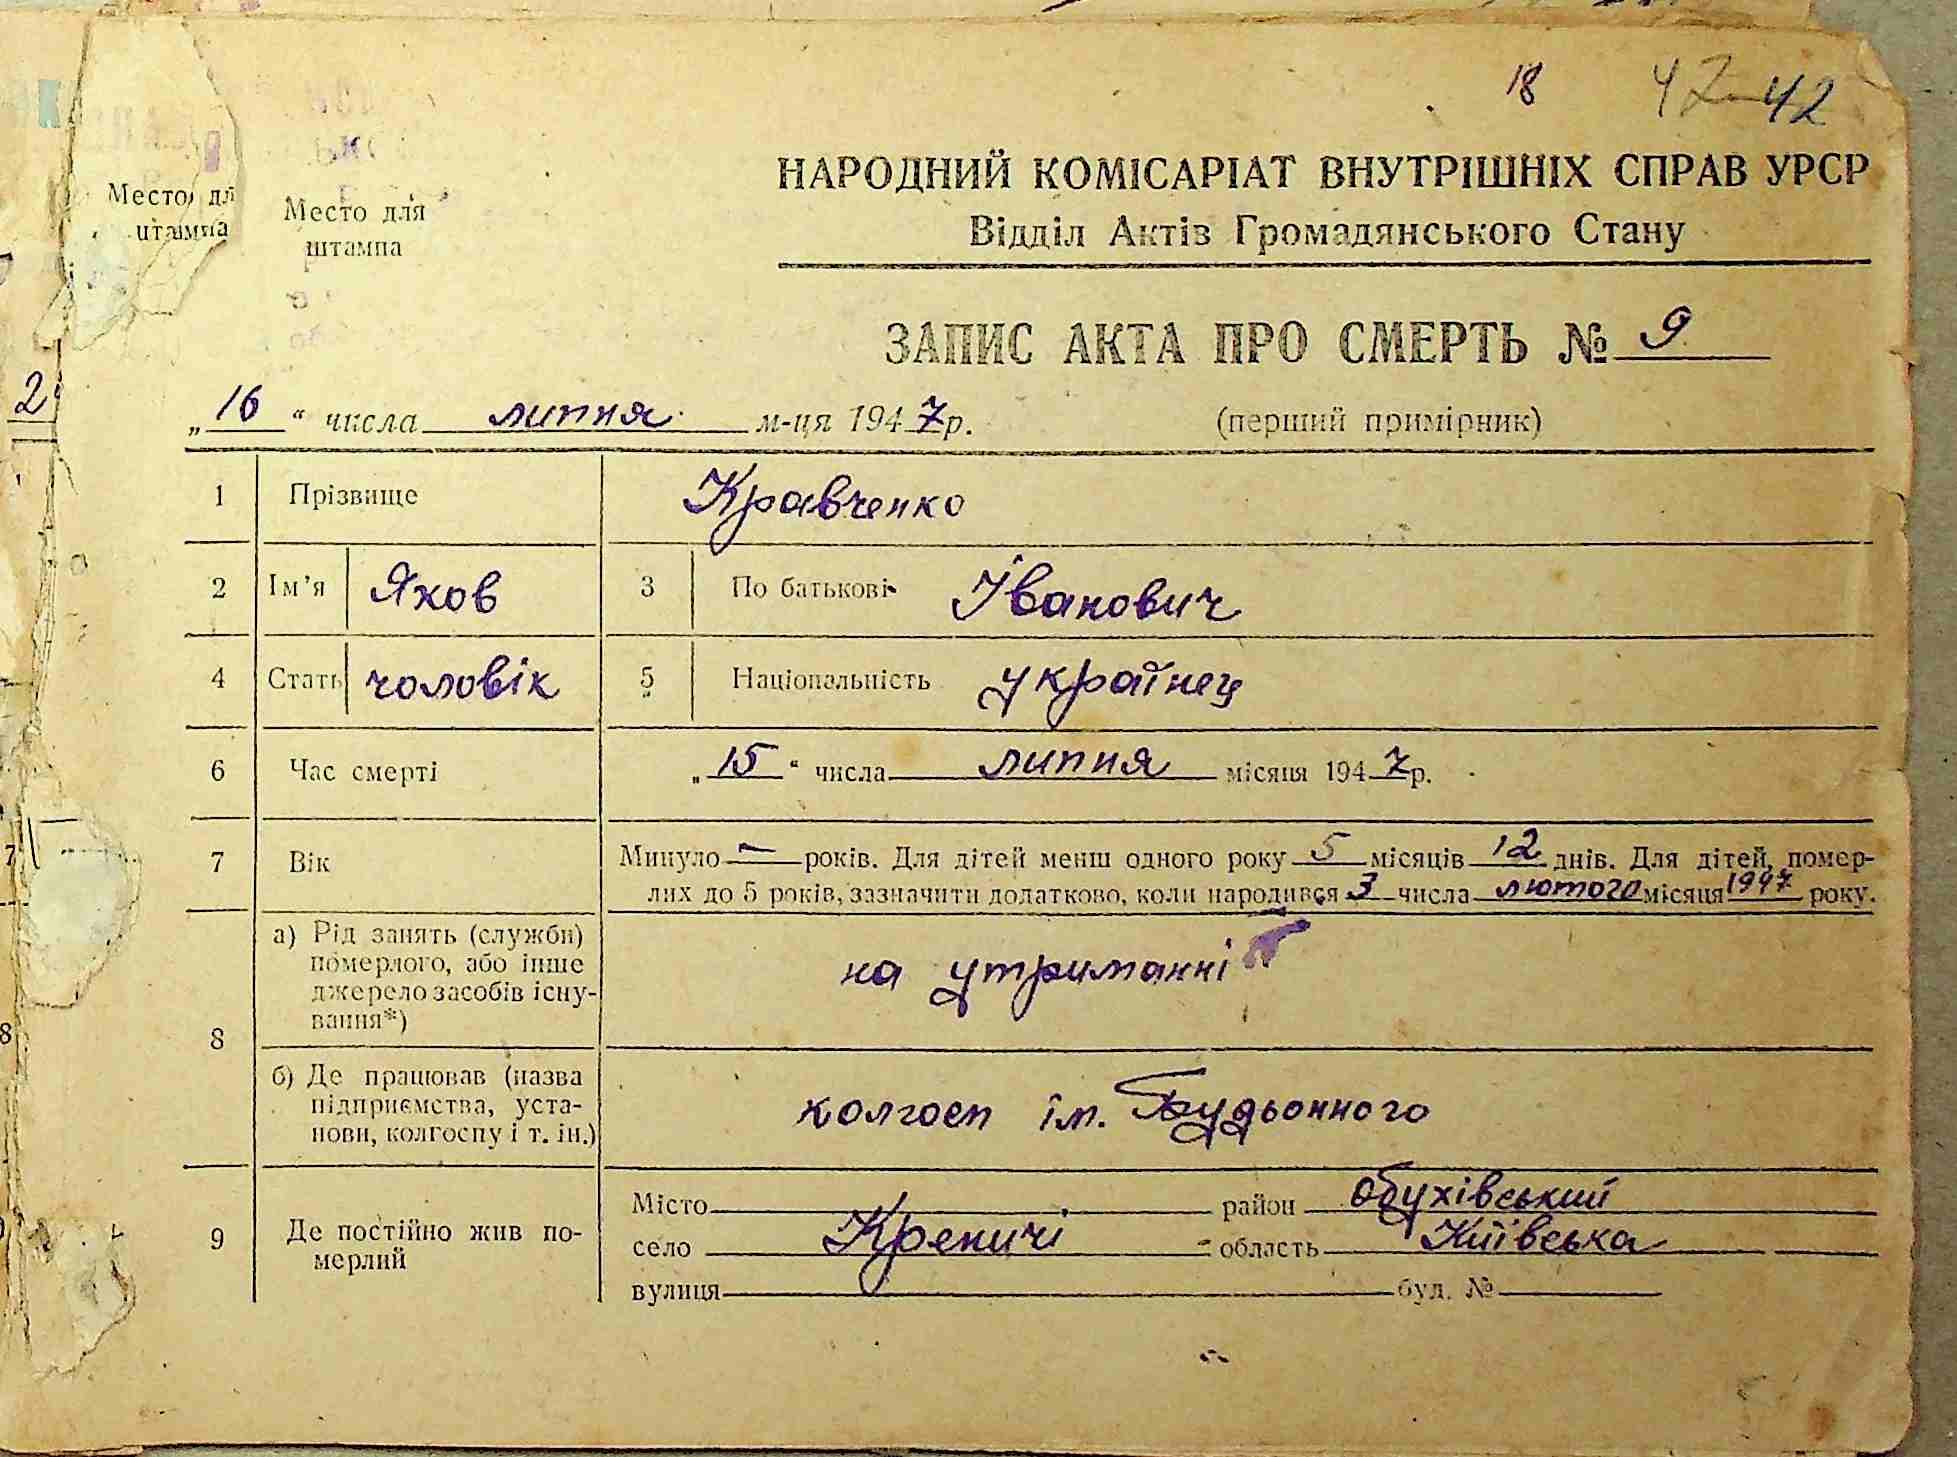 18 42 42
Место для
штампа
Место для
штампа
НАРОДНИЙ КОМІСАРІАТ ВНУТРІШНІХ СПРАВ УРСР
Відділ Актів Громадянського Стану
ЗАПИС АКТА ПРО СМЕРТЬ № 9
2
„16“ числа липня м-ця 1947 р. (перший примірник)
1 Прізвище Кравченко
2 Ім'я Яков 3 По батькові Іванович
4 Стать чоловік 5 Національність українец
6 Час смерті „15“ числа липня місяця 1947 р.
7 Вік Минуло — років. Для дітей менш одного року 5 місяців 12 днів. Для дітей, помер-
лих до 5 років, зазначити додатково, коли народився 3 числа лютого місяця 1947 року.
8 а) Рід занять (служби)
померлого, або інше
джерело засобів існу-
вання*)
на утриманні
б) Де працював (назва
підприємства, уста-
нови, колгоспу і т. ін.)
колгосп ім. Будьонного
9 Де постійно жив по-
мерлий
Місто район Обухівський
село Креничі область Київська
вулиця буд. №